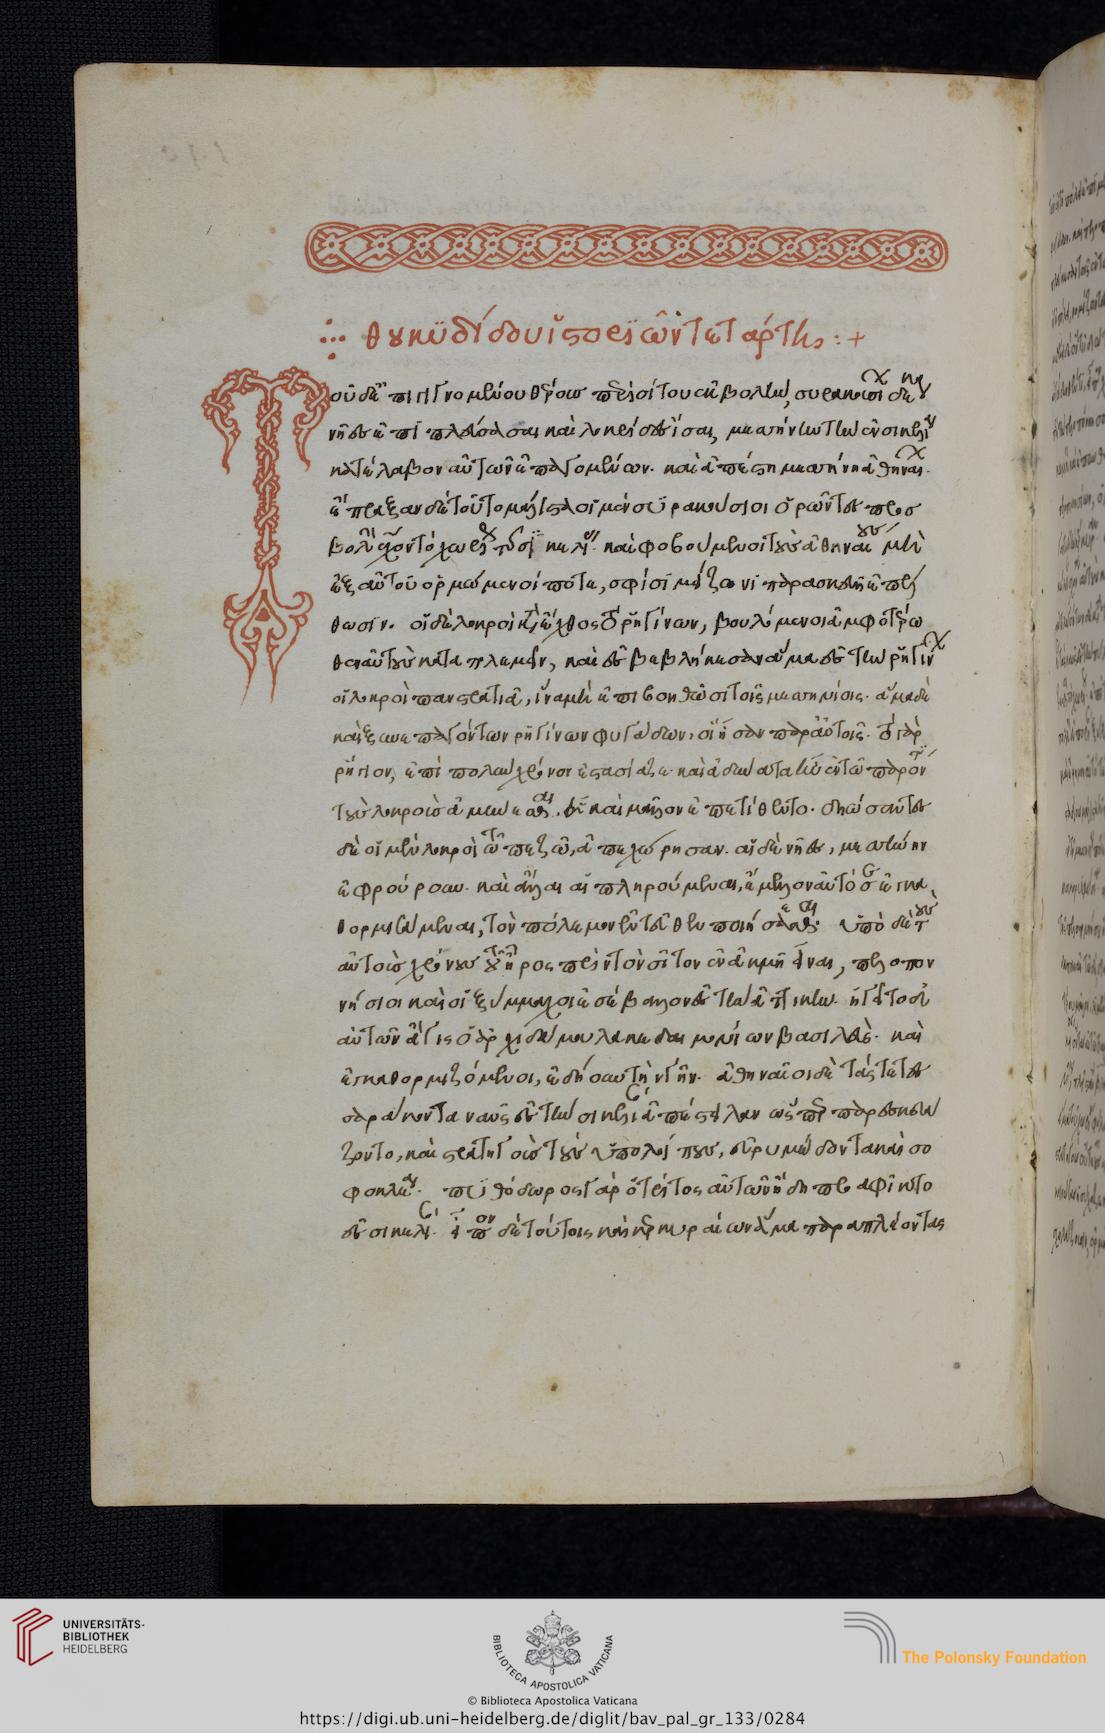 θουκυδίδου ἱστοριῶν τετάρτης :+
Τοῦ δ' ἐπιγιγνομένου θέρους περὶ σίτου ἐκβολὴν, συρακοσίων δέκα
νῆες ἐπιπλεύσασαι καὶ λοκρίδες ἴσαι, μεσσήνην τὴν ἐν σικελίᾳ
κατέλαβον αὐτῶν ἐπαγομένων. καὶ ἀπέστη μεσσήνη ἀθηναίων.
ἔπραξαν δὲ τοῦτο μάλιστα οἱ μὲν συρακούσιοι ὁρῶντες προσ
βολὴν ἔχον τὸ χωρίον τῆς σικελίας. καὶ φοβούμενοι τοὺς ἀθηναίους μὴ
ἐξ αὐτοῦ ὁρμώμενοί ποτε, σφίσι μείζονι παρασκευῇ ἐπέλ
θωσιν. οἱ δὲ λοκροὶ κατὰ ἔχθος τὸ ῥηγίνων, βουλόμενοι ἀμφοτέρω
θεν αὐτοὺς καταπλεμεῖν, καὶ ἐσεβεβλήκεσαν ἅμα ἐς τὴν ῥηγίνων
οἱ λοκροὶ πανστρατιᾷ, ἵνα μὴ ἐπιβοηθῶσι τοῖς μεσσηνίοις. ἅμα δὲ
καὶ ξυνεπαγόντων ῥηγίνων φυγάδων, οἳ ἦσαν παρ' αὐτοῖς. τὸ γὰρ
ῥήγιον, ἐπὶ πολὺν χρόνον ἐστασίαζε. καὶ ἀδύνατα ἦν ἐν τῷ παρόντι
τοὺς λοκροὺς ἀμύνεσθαι. ᾗ καὶ μᾶλλον ἐπετίθεντο. δῃώσαντες
δὲ οἱ μὲν λοκροὶ τῷ πεζῷ, ἀπεχώρησαν. αἱ δὲ νῆες, μεσσήνην
ἐφρούρουν. καὶ ἄλλαι αἱ πληρούμεναι, ἔμελλον αὐτόσε ἐγκα
θορμισάμεναι, τὸν πόλεμον ἐντεῦθεν ποιήσεσθαι. ὑπὸ δὲ τοὺς
αὐτοὺς χρόνους τοῦ ἦρος πρὶν τὸν σῖτον ἐν ἀκμῇ εἶναι, πελοπον
νήσιοι καὶ οἱ ξύμμαχοι ἐσέβαλον ἐς τὴν ἀττικήν. ἡγεῖτο δὲ
αὐτῶν ἆγις ὁ ἀρχιδάμου λακεδαιμονίων βασιλεύς. καὶ
ἐγκαθορμιζόμενοι, ἐδῄουν τὴν γῆν. ἀθηναῖοι δὲ τάς τε τεσ
σαράκοντα ναῦς ἐς τὴν σικελίαν ἀπέστειλαν ὥσπερ παρεσκευά
ζοντο, καὶ στρατηγοὺς τοὺς ὑπολοίπους, εὐρυμέδοντα καὶ σο
φοκλέα. πυθόδωρος γὰρ ὁ τρίτος αὐτῶν ἤδη προαφῖκτο
ἐς σικελίαν. εἶπον δὲ τούτοις καὶ κερκυραίων ἅμα παραπλέοντας
UNIVERSITÄTS-
BIBLIOTHEK
HEIDELBERG
BIBLIOTECA APOSTOLICA VATICANA
The Polonsky Foundation
© Biblioteca Apostolica Vaticana
https://digi.ub.uni-heidelberg.de/diglit/bav_pal_gr_133/0284